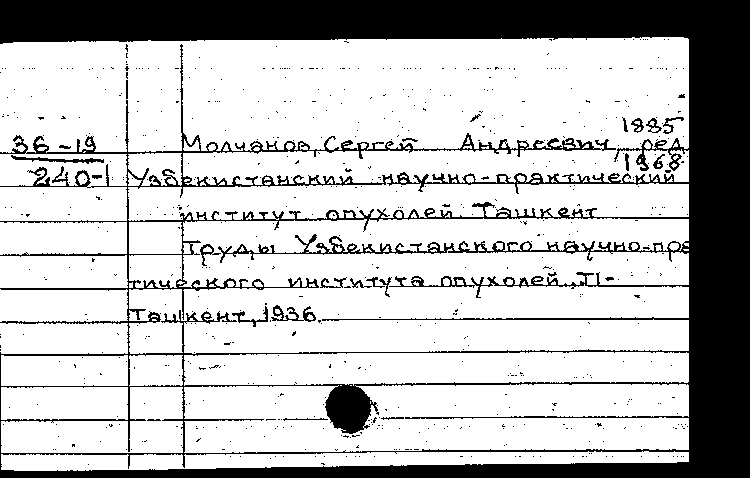 1885
36-19 Молчанов, Сергей Андреевич, ред.
1968
240-1 Узбекистанский научно-практический
институт опухолей. Ташкент
Труды Узбекистанского научно-пра
тического института опухолей, Т1-
Ташкент, 1936.